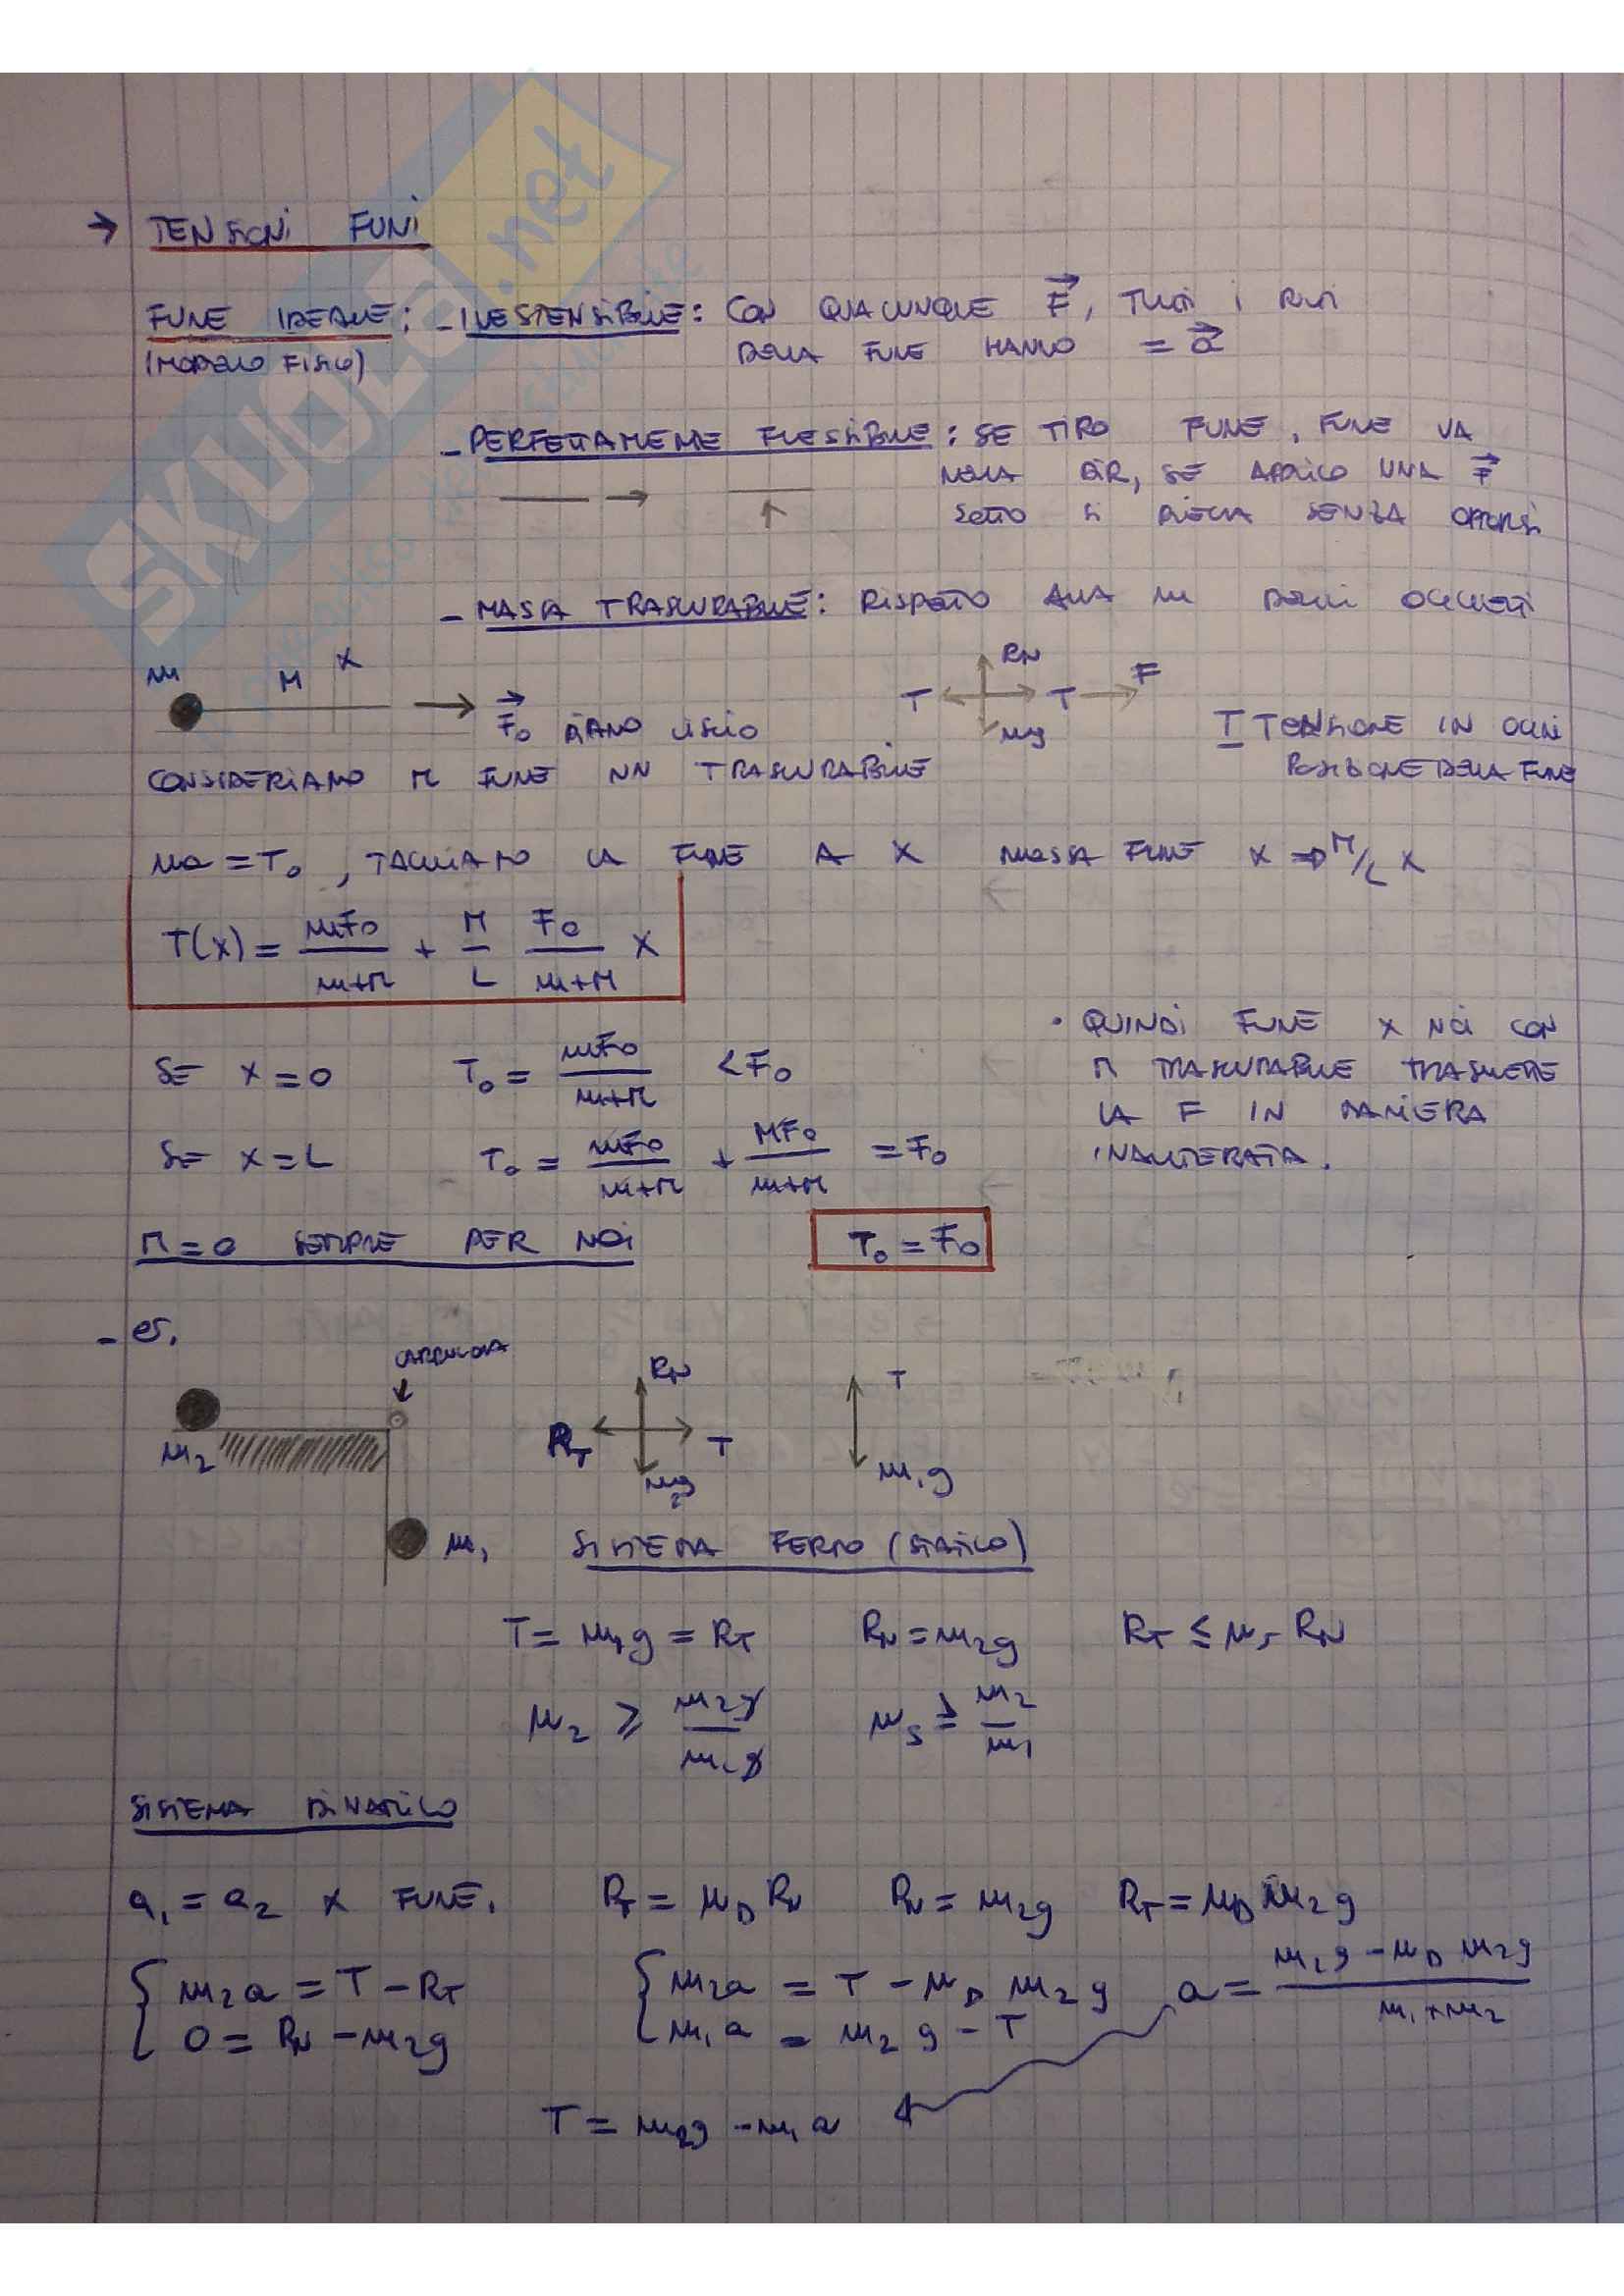 → TENSIONI FUNI
FUNE IDEALE: - INESTENSIBILE: CON QUALUNQUE F, TUTTI I PUNTI
(MODELLO FISICO) DELLA FUNE HANNO = a
- PERFETTAMENTE FLESSIBILE: SE TIRO FUNE, FUNE VA
NELLA DIR, SE APPLICO UNA F
SOTTO SI PIEGA SENZA OPPORSI
- MASSA TRASCURABILE: RISPETTO ALLA m DEGLI OGGETTI
m M X
F₀ PIANO LISCIO
RN
T T F
mg
T TENSIONE IN OGNI
POSIZIONE DELLA FUNE
CONSIDERIAMO M FUNE NN TRASCURABILE
ma = T₀, TAGLIAMO LA FUNE A X MASSA FUNE X ⇒ M/L X
T(x) = mF₀/(m+M) + M/L F₀/(m+M) X
SE X = 0 T₀ = mF₀/(m+M) < F₀
SE X = L T₀ = mF₀/(m+M) + MF₀/(m+M) = F₀
• QUINDI FUNE X NOI CON
M TRASCURABILE TRASMETTE
LA F IN MANIERA
INALTERATA.
M = 0 SEMPRE PER NOI T₀ = F₀
- es.
CARRUCOLA
m₂
RN
RT T
m₂g
T
m₁g
m₁ SISTEMA FERMO (STATICO)
T = m₁g = RT RN = m₂g RT ≤ μs RN
μ₂ ≥ m₂g/m₁g μs ≥ m₂/m₁
SISTEMA DINAMICO
a₁ = a₂ X FUNE. RT = μD RN RN = m₂g RT = μD m₂g
{ m₂a = T - RT { m₂a = T - μD m₂g a = (m₂g - μD m₂g)/(m₁+m₂)
{ 0 = RN - m₂g { m₁a = m₂g - T
T = m₂g - m₁a
SKUOLA.net